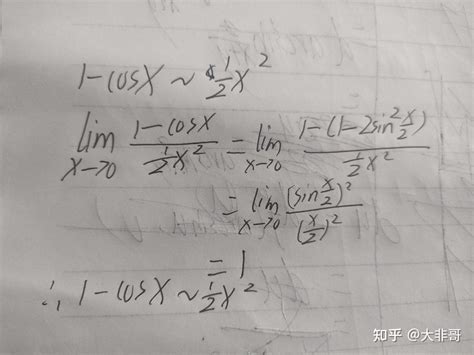 1-cosx ~ 1/2 x²
lim x→0 (1-cosx)/(1/2 x²) = lim x→0 (1-(1-2sin² x/2))/(1/2 x²)
= lim x→0 (sin x/2)²/(x/2)²
= 1
∴ 1-cosx ~ 1/2 x²
知乎 @大非哥